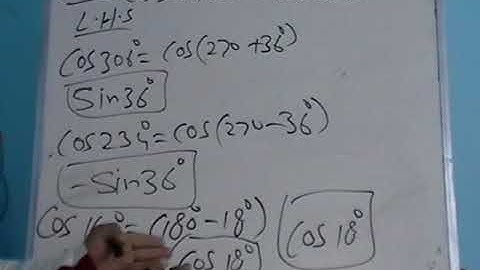 L.H.S
Cos306°= Cos(270+36°)
Sin36°
Cos234°=Cos(270-36°)
-Sin36°
= (180°-18°)
Cos 18°
Cos 18°